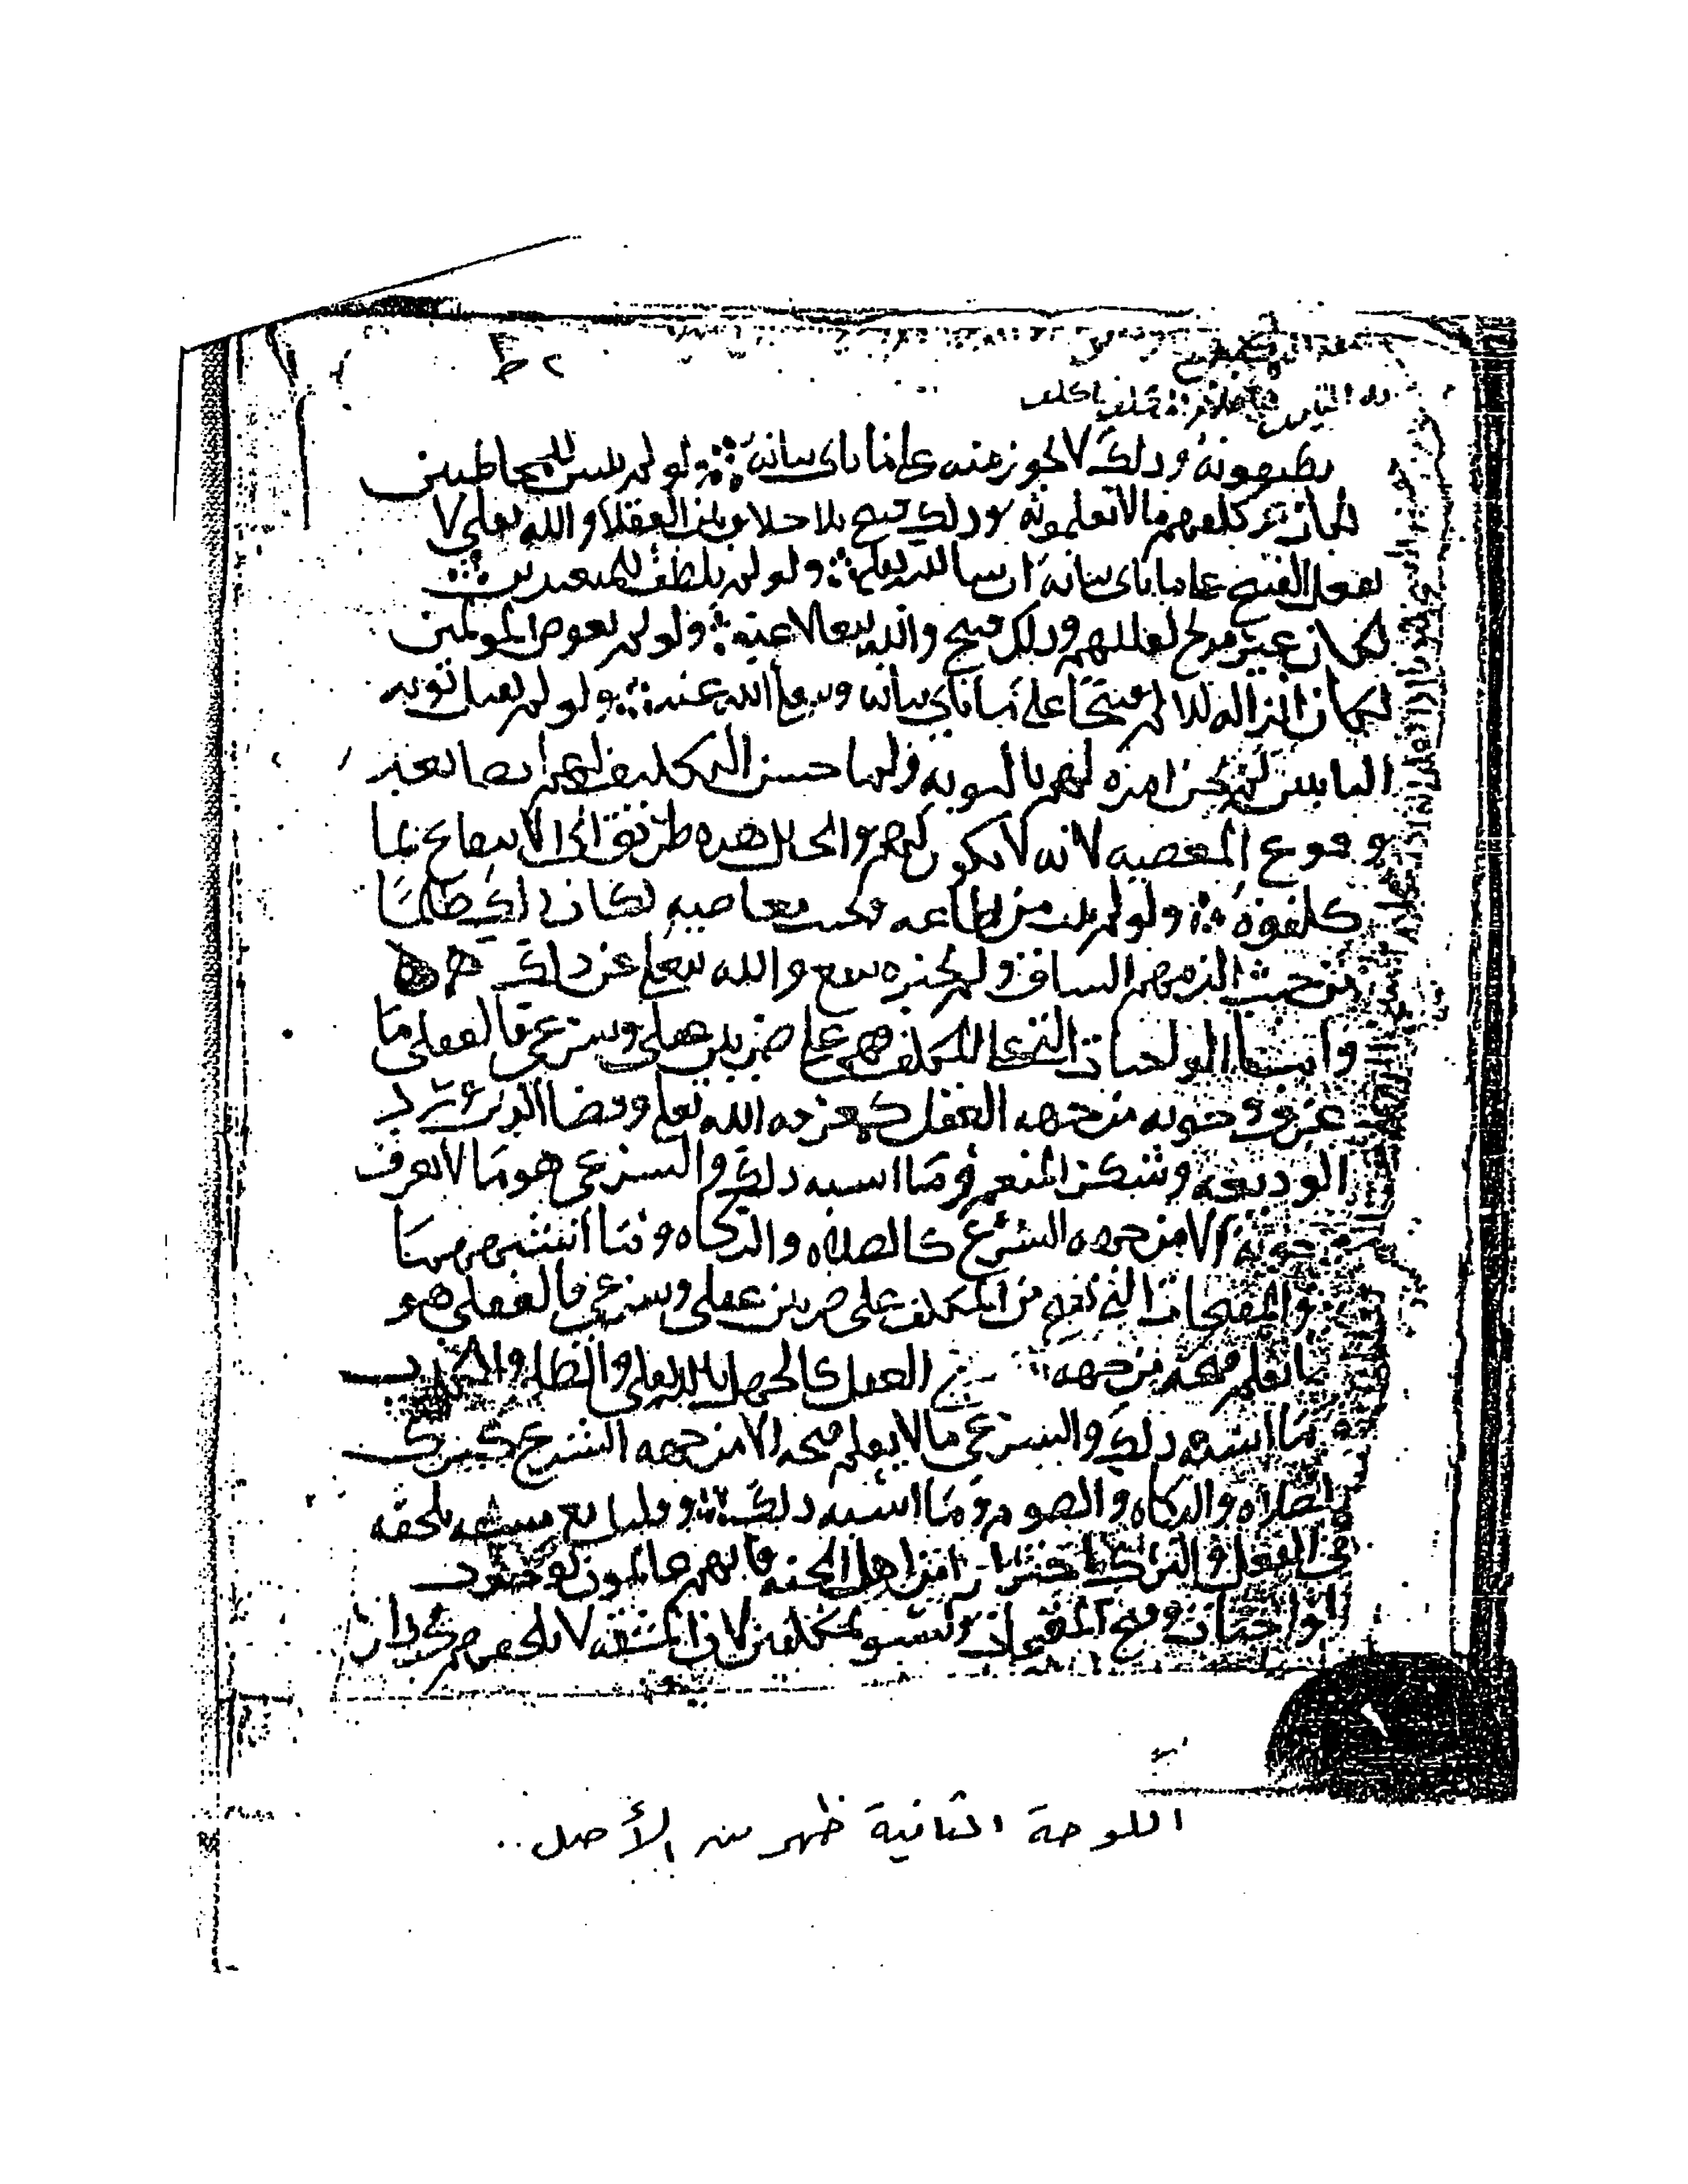 ٢ ظ
يطيقونه وذلك لا يجوز منه على ما يأتي بيانه ولو لم يبين للمخاطبين
لكان قد كلفهم ما لا يعلمونه وذلك قبيح بلا خلاف بين العقلاء والله تعلى لا
يفعل القبيح على ما يأتي بيانه ان شا الله تعلى ولو لم يلطف للمتعبدين
لكان غير مزيح لعللهم وذلك قبيح والله يتعالا عنه ولو لم يعوض المولمين
لكان انزاله للالم قبيحا على ما يأتي بيانه ويتعلى الله عنه ولو لم يقبل توبه
التايبين لم يحسن امره لهم بالتوبه ولما حسن التكليف لهم ايضا بعد
وقوع المعصيه لانه لا يكون لهم والحال هذه طريق الى الانتفاع بما
كلفوه ولو لم يثب من اطاعه وتجنب معاصيه لكان ذلك ظلما
من حيث الزمهم الشاق ولم يجبره بنفع والله يتعلى عن ذلك
واما الواجبات التي على المكلف فهي على ضربين عقلي وشرعي فالعقلي ما
عرف وجوبه من جهه العقل كمعرفه الله تعلى وقضا الدين ورد
الوديعه وشكر المنعم وما اشبه ذلك والشرعي هو ما لا يعرف
وجوبه الا من جهه الشرع كالصلاه والزكاه وما اشبههما
والمقبحات التي تقع من المكلف على ضربين عقلي وشرعي فالعقلي هو
ما يعلم قبحه من جهه العقل كالجهل بالله تعلى والظلم والكذب
وما اشبه ذلك والشرعي ما لا يعلم قبحه الا من جهه الشرع كترك
الصلاه والزكاه والصوم وما اشبه ذلك وقلنا مع مشقه تلحقه
في الفعل والترك احترازا من اهل الجنه فانهم عالمون بوجوب
الواجبات وقبح المقبحات وليسو بمكلفين لان المشقه لا تلحقهم
اللوحة الثانية ظهر من الأصل..